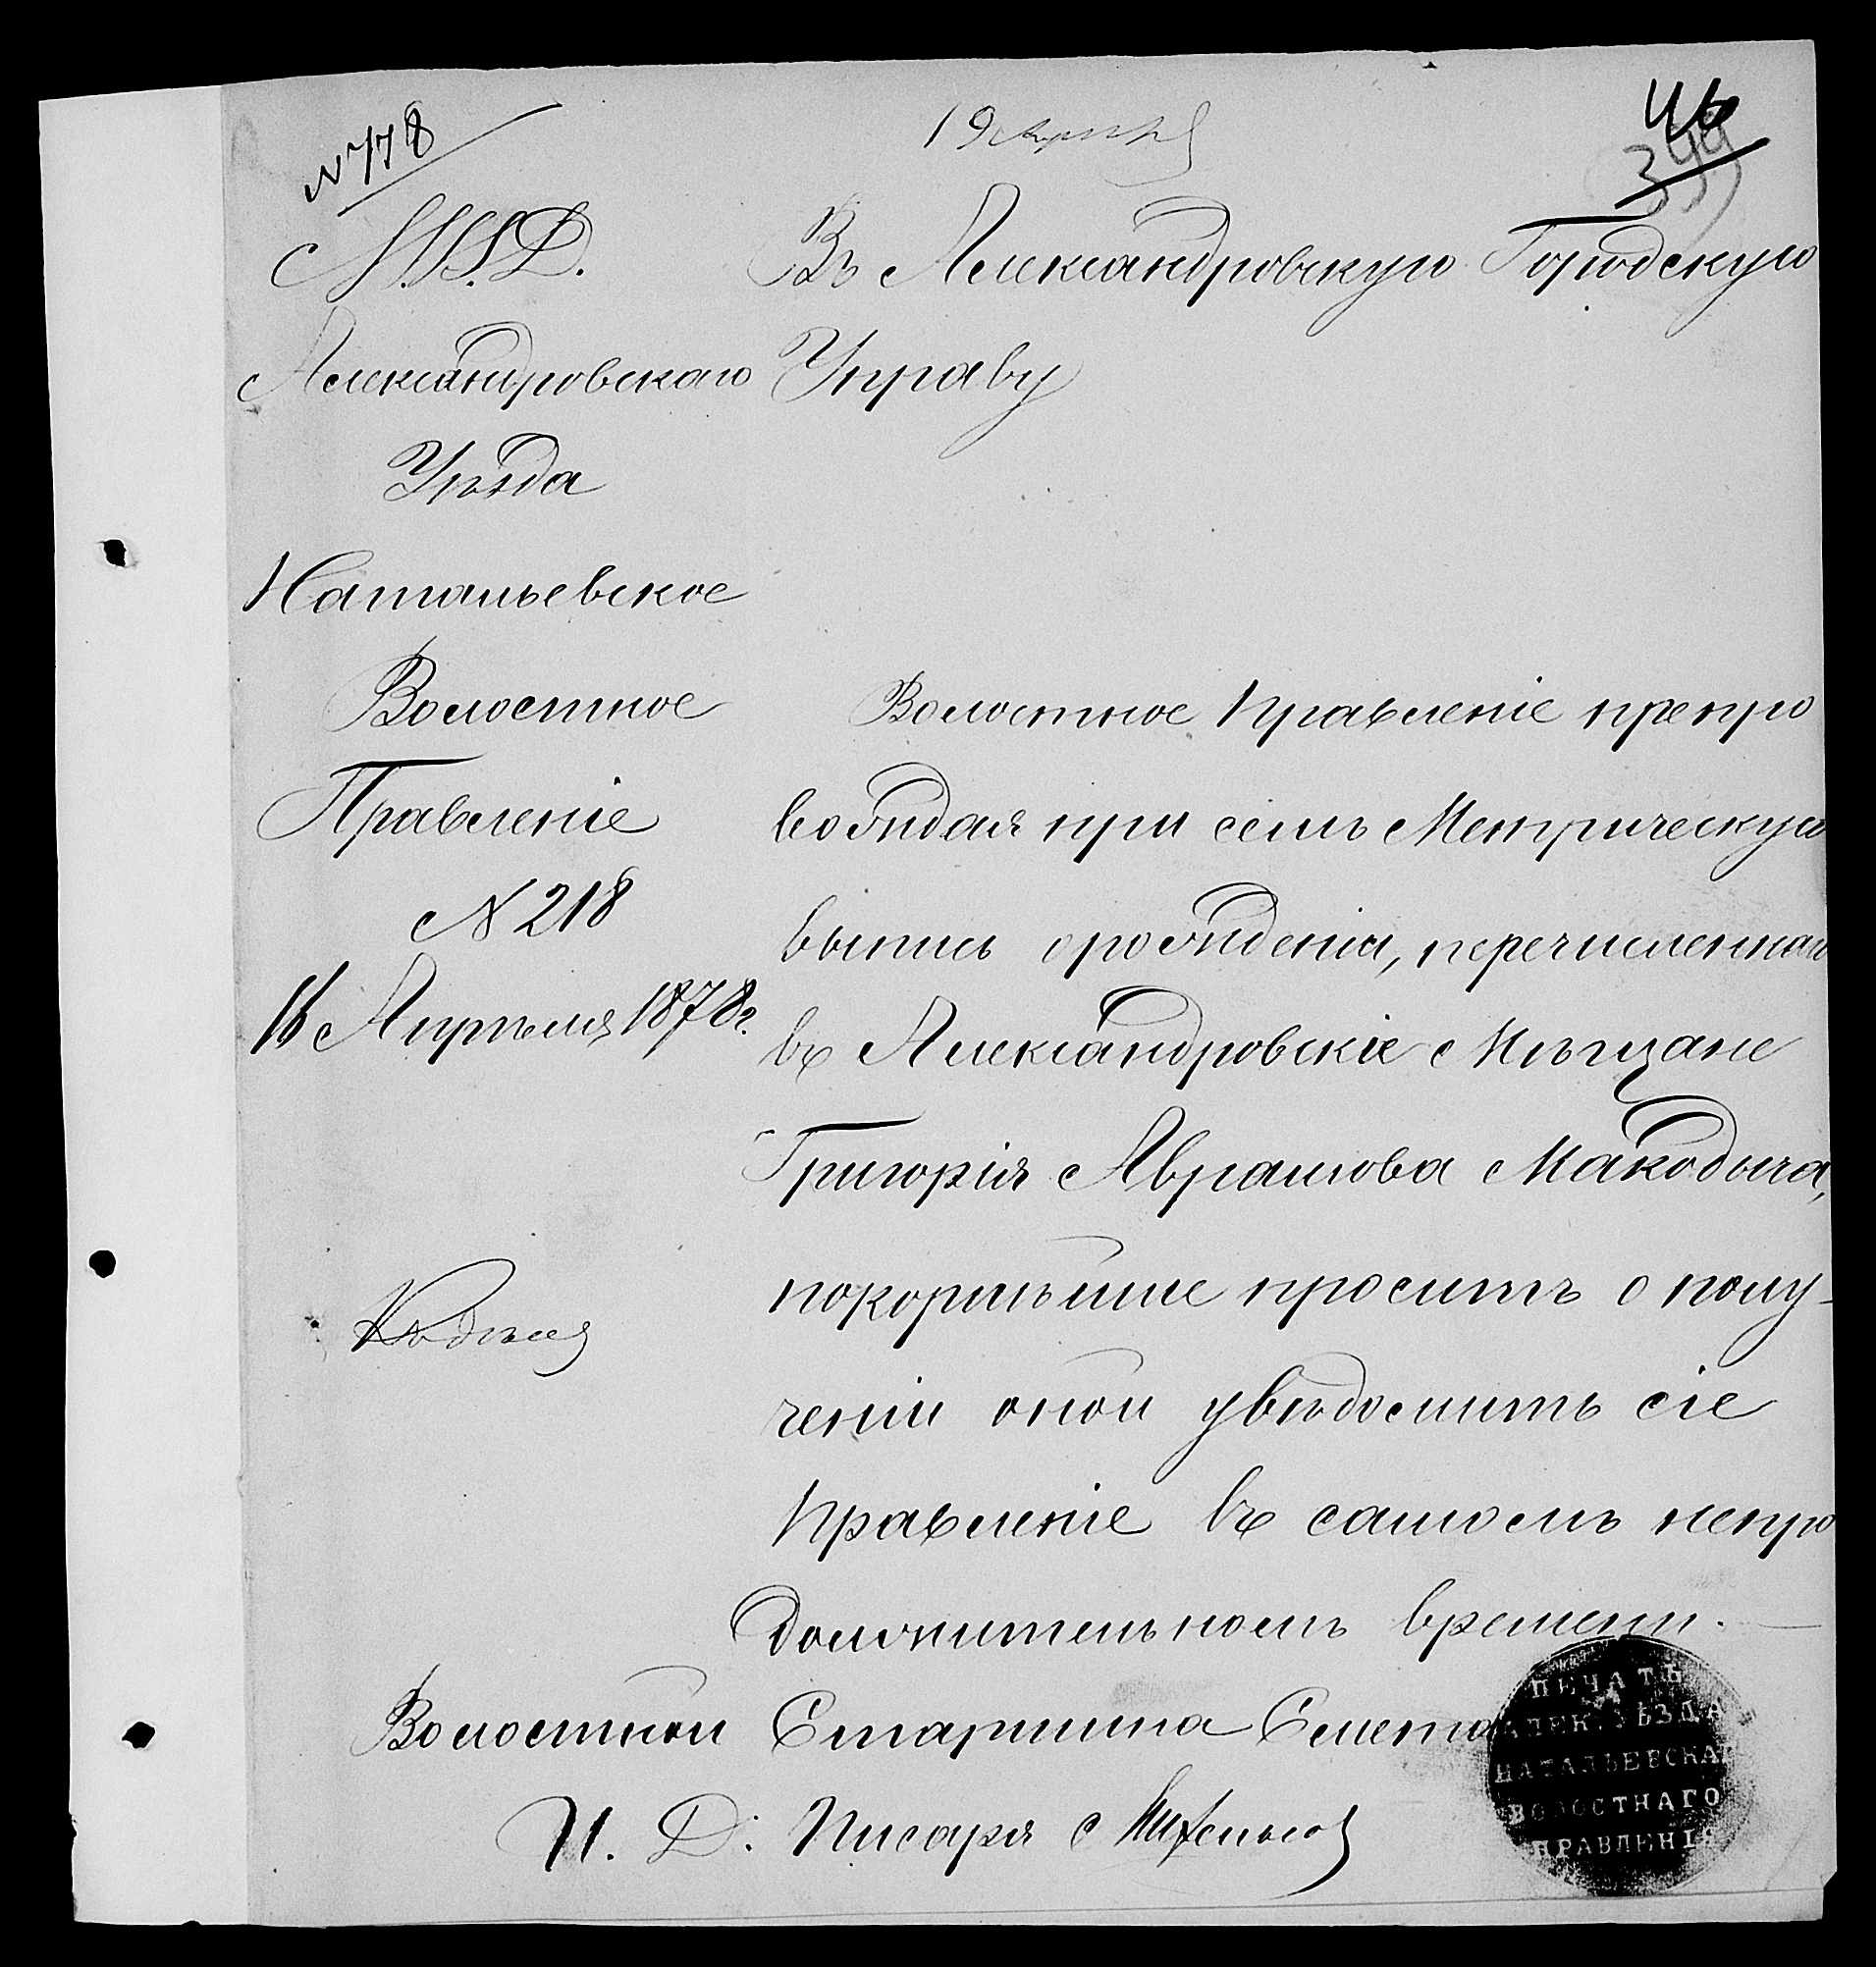 N 778
19 Апреля
46
399
М.В.Д.
Александровскаго
Уѣзда
Натальевское
Волостное
Правленіе
N 218
16 Апрѣля 1878 г.
Въ Александровскую Городскую
Управу
Волостное Правленіе препро
вождая при семъ Метрическую
выпись о рожденіи, перечисленнаго
въ Александровскіе Мѣщане
Григорія Аврамова Макодыча,
покорнѣйше проситъ о полу-
ченіи оной увѣдомить сіе
Правленіе въ самомъ непро
должительномъ времени.
Волостной Старшина
И. Д. Писаря
ПЕЧАТЬ
АЛЕК. УѢЗДА
НАТАЛЬЕВСКА
ВОЛОСТНАГО
ПРАВЛЕНІЯ